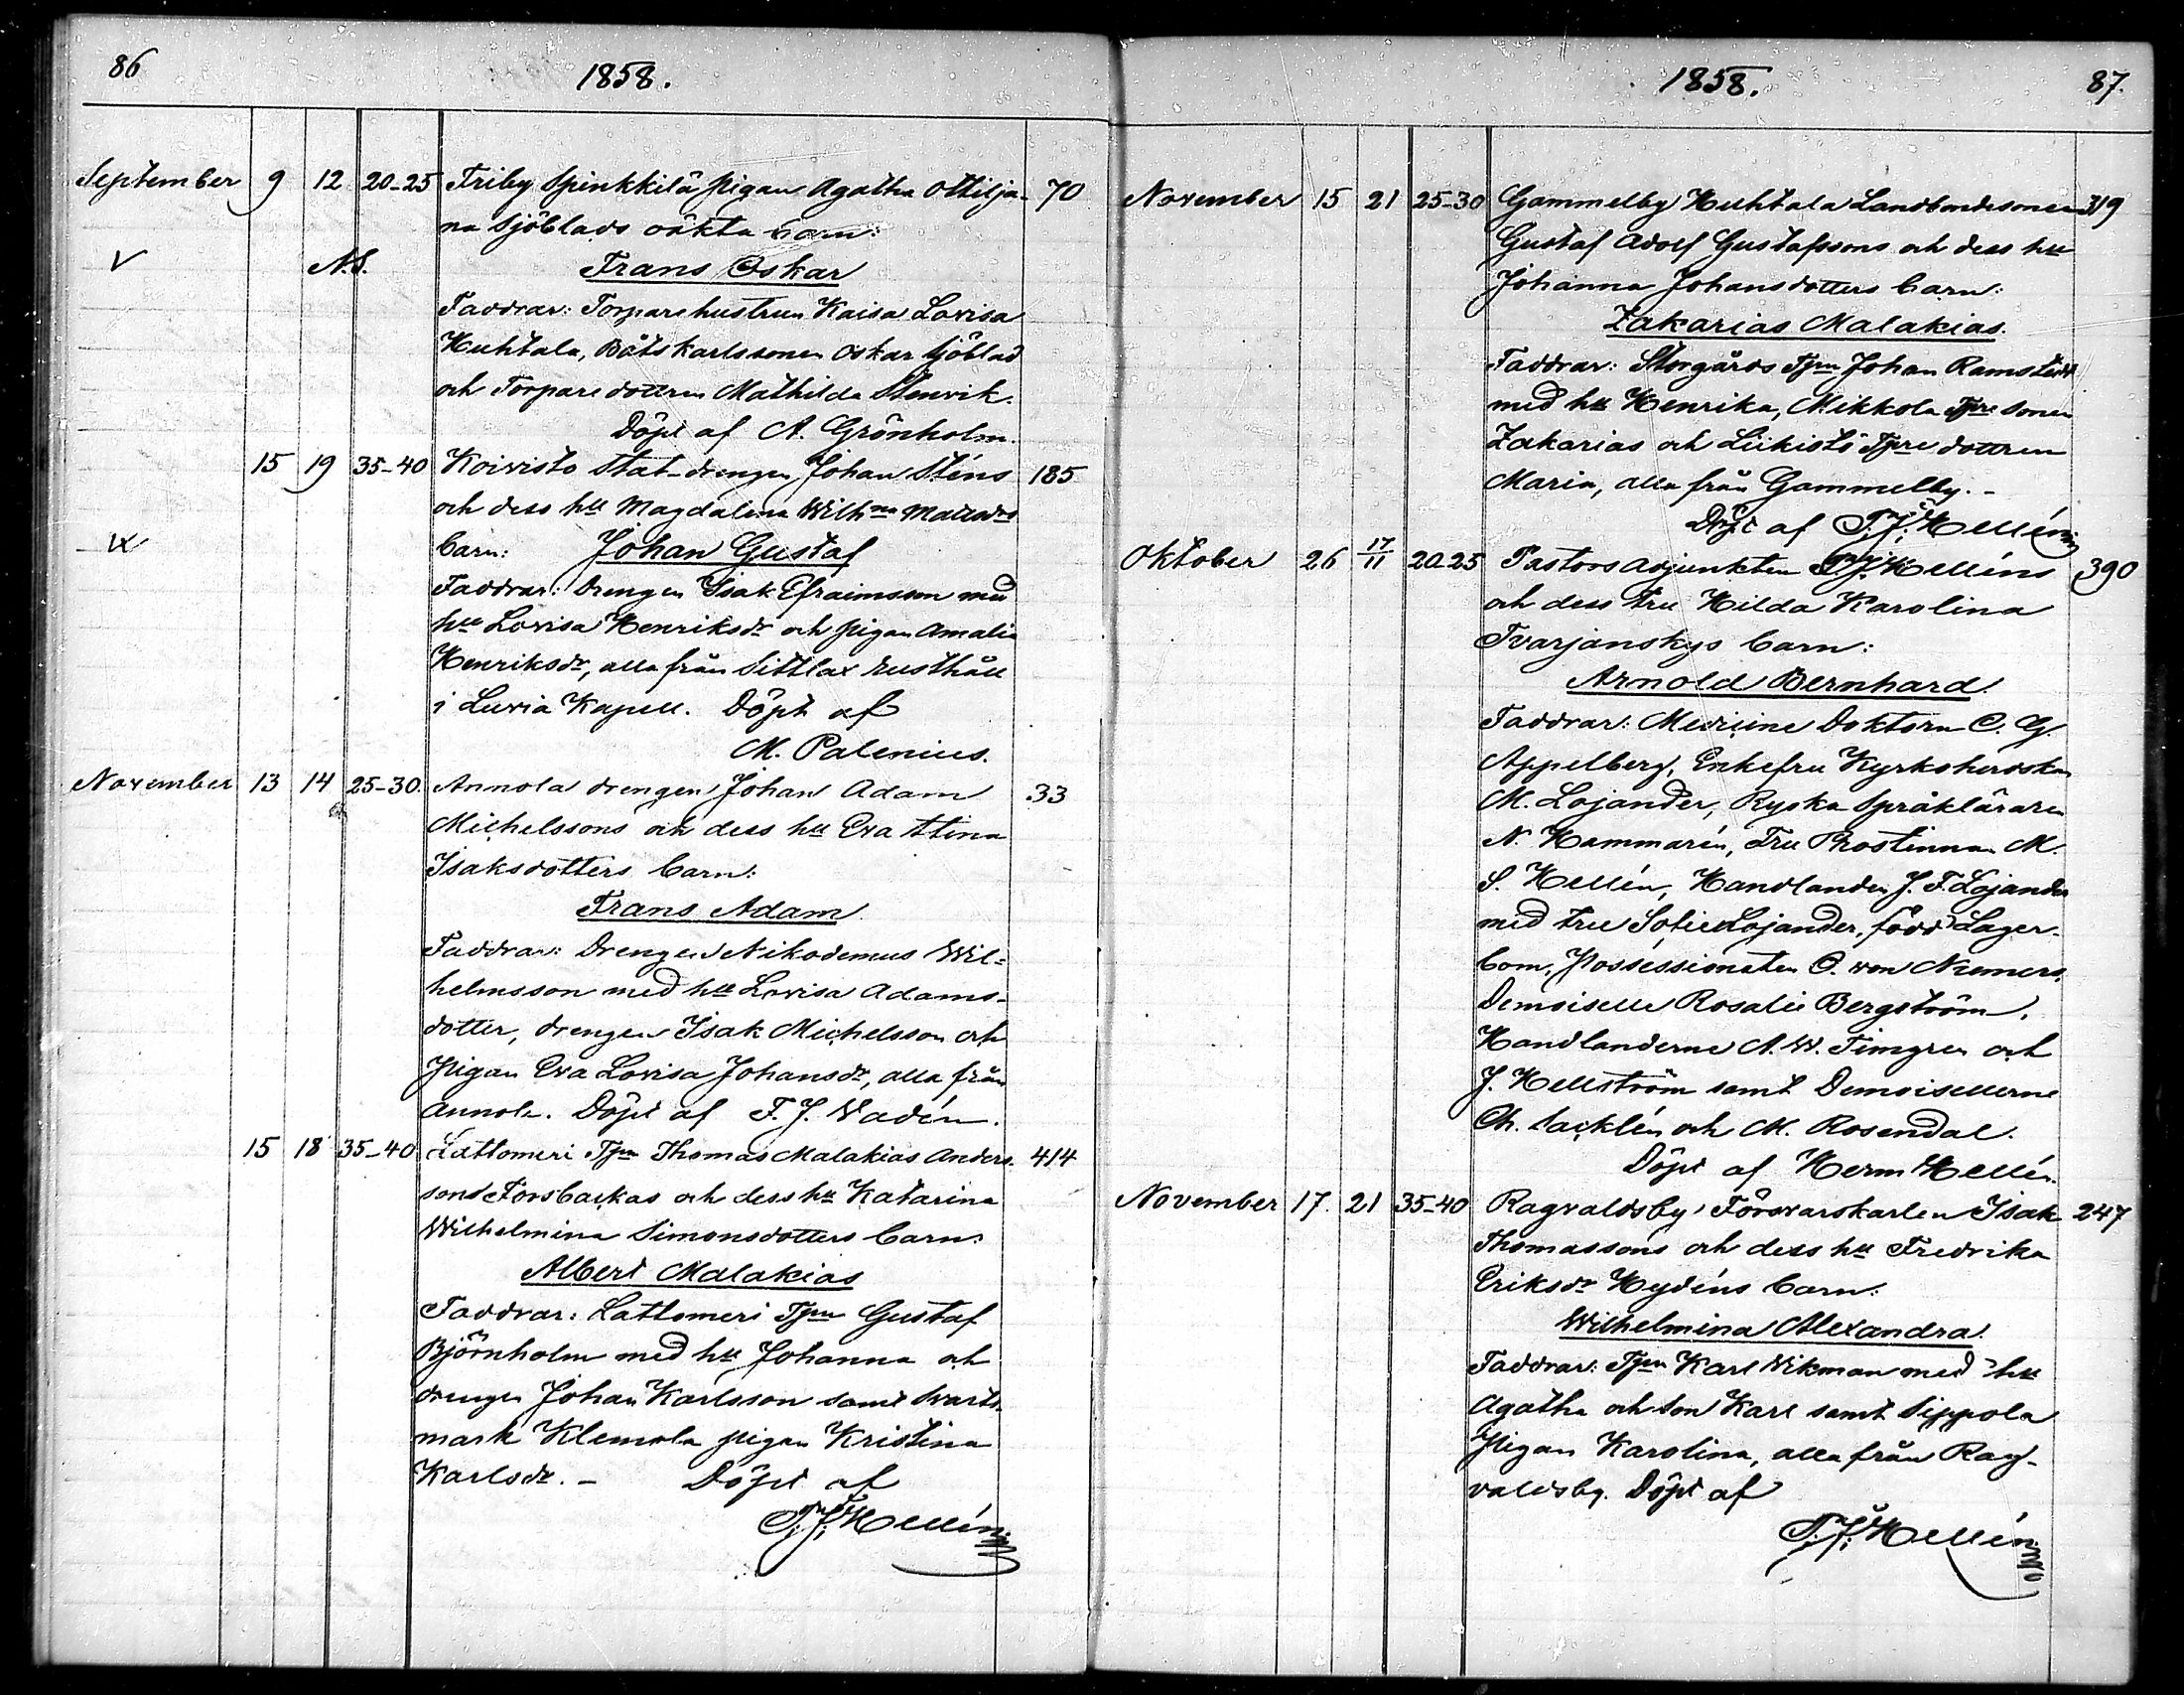 86
1858.
September 9 12 20-25 Friby Spinkkilä pigan Agatha Ottilja- 70
na Sjöblads oäkta barn:
V N.S. Frans Oskar
Faddrar: Torparehustrun Kaisa Lovisa
Huhtala, Båtskarlssonen Oskar Sjöblad
och Torparedottren Mathilda Stenvik.
Döpt af A. Grönholm.
15 19 35-40 Koivisto Stat-drengen Johan Sténs 185
och dess hu Magdalena Wilhna Mattsdrs
barn: Johan Gustaf
Faddrar: Drengen Isak Efraimsson med
hu Lovisa Henriksdr och pigan Amalia
Henriksdr, alla från Sittlax rusthåll
i Luvia Kapell. Döpt af
M. Palenius.
November 13 14 25-30. Annola drengen Johan Adam 33
Michelssons och dess hu Eva Stina
Isaksdotters barn:
Frans Adam.
Faddrar: Drengen Nikodemus Wil-
helmsson med hu Lovisa Adams-
dotter, drengen Isak Michelsson och
Pigan Eva Lovisa Johansdr, alla från
Annola. Döpt af F. J. Wadén.
15 18 35-40 Lattomeri Tpn Thomas Malakias Anders- 414
sons Forsbackas och dess hu Katarina
Wilhelmina Simonsdotters barn:
Albert Malakias
Faddrar: Lattomeri Tpn Gustaf
Björnholm med hu Johanna och
drengen Johan Karlsson samt Svarts-
mark Klemola pigan Kristina
Karlsdr. - Döpt af
F. J. Hellén
1858.
87.
November 15 21 25-30 Gammelby Huhtala Landbondesonen 319
Gustaf Adolf Gustafssons och dess hu
Johanna Johansdotters barn:
Zakarias Malakias.
Faddrar: Storgårds Tpn Johan Ramstedt
med hu Henrika, Mikkola Tpre sonen
Zakarias och Liikistö Tpre dottren
Maria, alla från Gammelby. -
Döpt af F. J. Hellén
Oktober 26 17/11 20-25 Pastors adjunkten F. J. Helléns 390
och dess fru Hilda Karolina
Tvarjanskys barn:
Arnold Bernhard.
Faddrar: Medicine Doktorn C. G.
Appelberg, Enkefru Kyrkoherdskan
M. Lojander, Ryska Språkläraren
N. Hammarén, Fru Prostinnan M.
S. Hellén, Handlanden J. F. Lojander
med fru Sofie Lojander, född Lager-
bom, Possessionaten O. von Numers,
Demoiselle Rosalie Bergström,
Handlanderne A. W. Timgren och
J. Hellström samt Demoisellerne
Ch. Sacklén och M. Rosendal.
Döpt af Herm Hellén.
November 17. 21 35-40 Ragvaldsby, Försvarskarlen Isak 247
Thomassons och dess hu Fredrika
Eriksdr Hydéns barn:
Wilhelmina Alexandra.
Faddrar: Tpn Karl Wikman med hu
Agatha och son Karl samt Sippola
Pigan Karolina, alla från Rag-
valdsby. Döpt af
F. J. Hellén